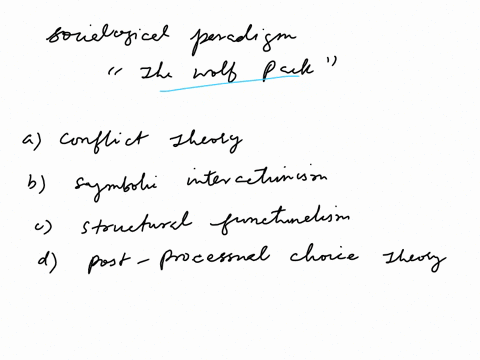 Sociological paradigm
"The Wolf Pack"
a) Conflict Theory
b) Symbolic interactionism
c) Structural functionalism
d) Post-Processual choice Theory